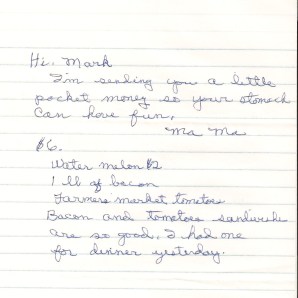 Hi, Mark
I'm sending you a little
pocket money so your stomach
can have fun,
Ma Ma
$6.
Water melon $2
1 lb of bacon
Farmers market tomatoes
Bacon and tomatoes sandwiches
are so good, I had one
for dinner yesterday.